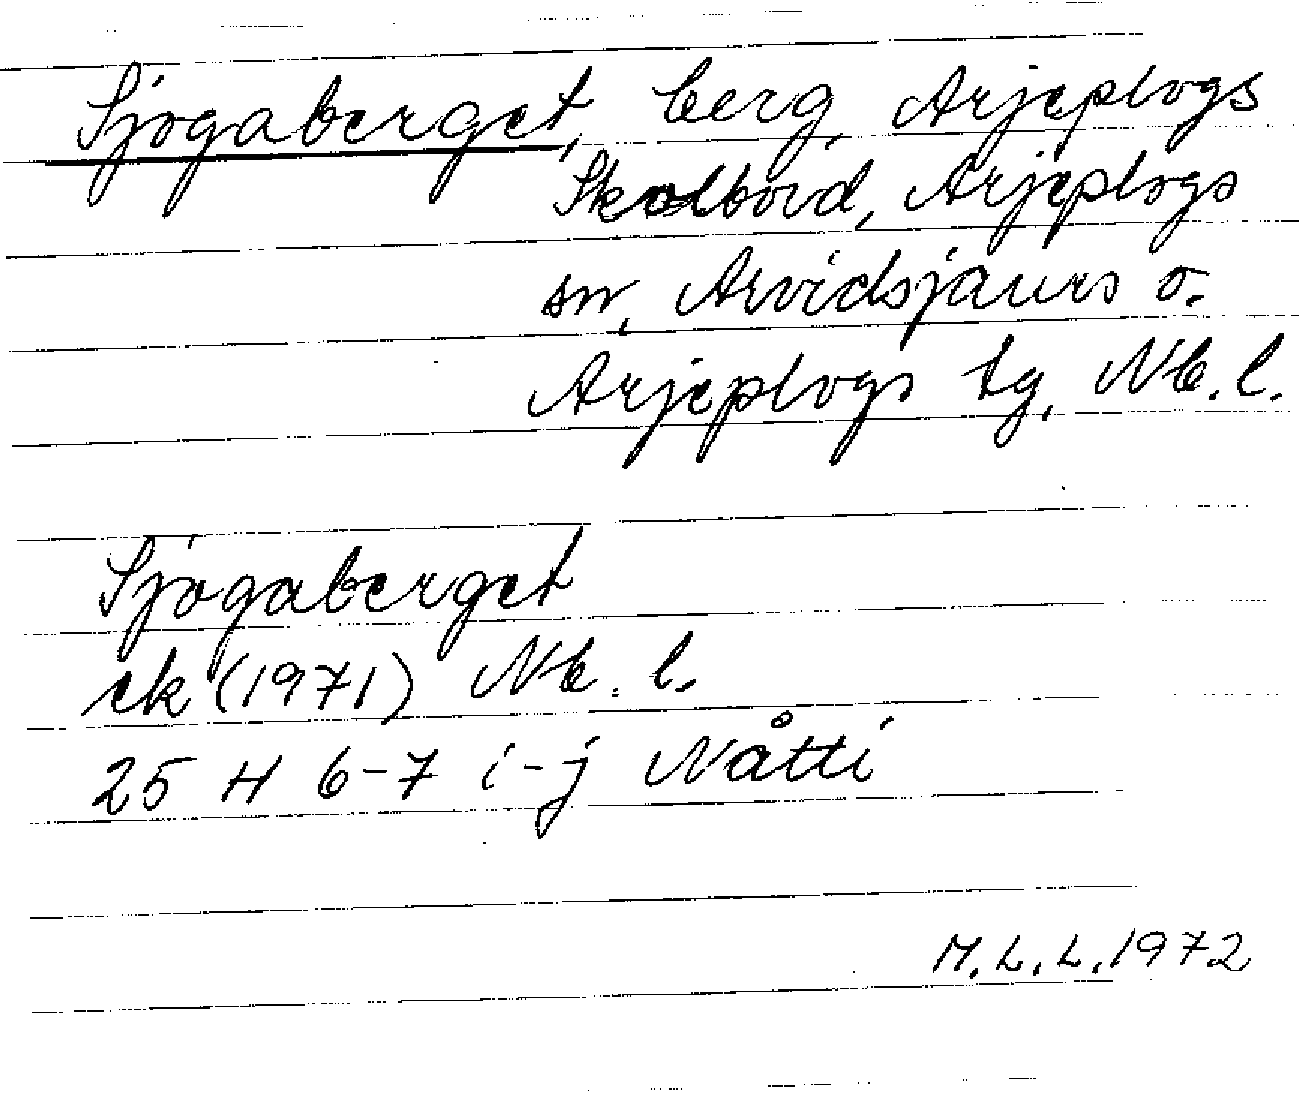 Sjögaberget, berg, Arjeplogs
Skolbord, Arjeplogs
sn, Arvidsjaurs o.
Arjeplogs tg, Nb. l.
Sjögaberget
ek (1971) Nb. l.
25 H 6-7 i-j Nåtti
M.L.L. 1972